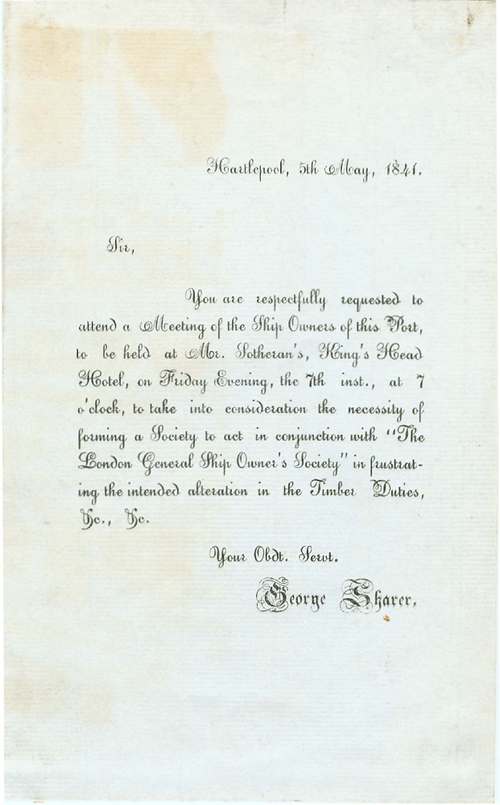 Hartlepool, 5th May, 1841.
Sir,
You are respectfully requested to
attend a Meeting of the Ship Owners of this Port,
to be held at Mr. Sotheran's, King's Head
Hotel, on Friday Evening, the 7th inst., at 7
o'clock, to take into consideration the necessity of
forming a Society to act in conjunction with "The
London General Ship Owner's Society" in frustrat-
ing the intended alteration in the Timber Duties,
&c., &c.
Your Obdt. Servt.
George Sharer.